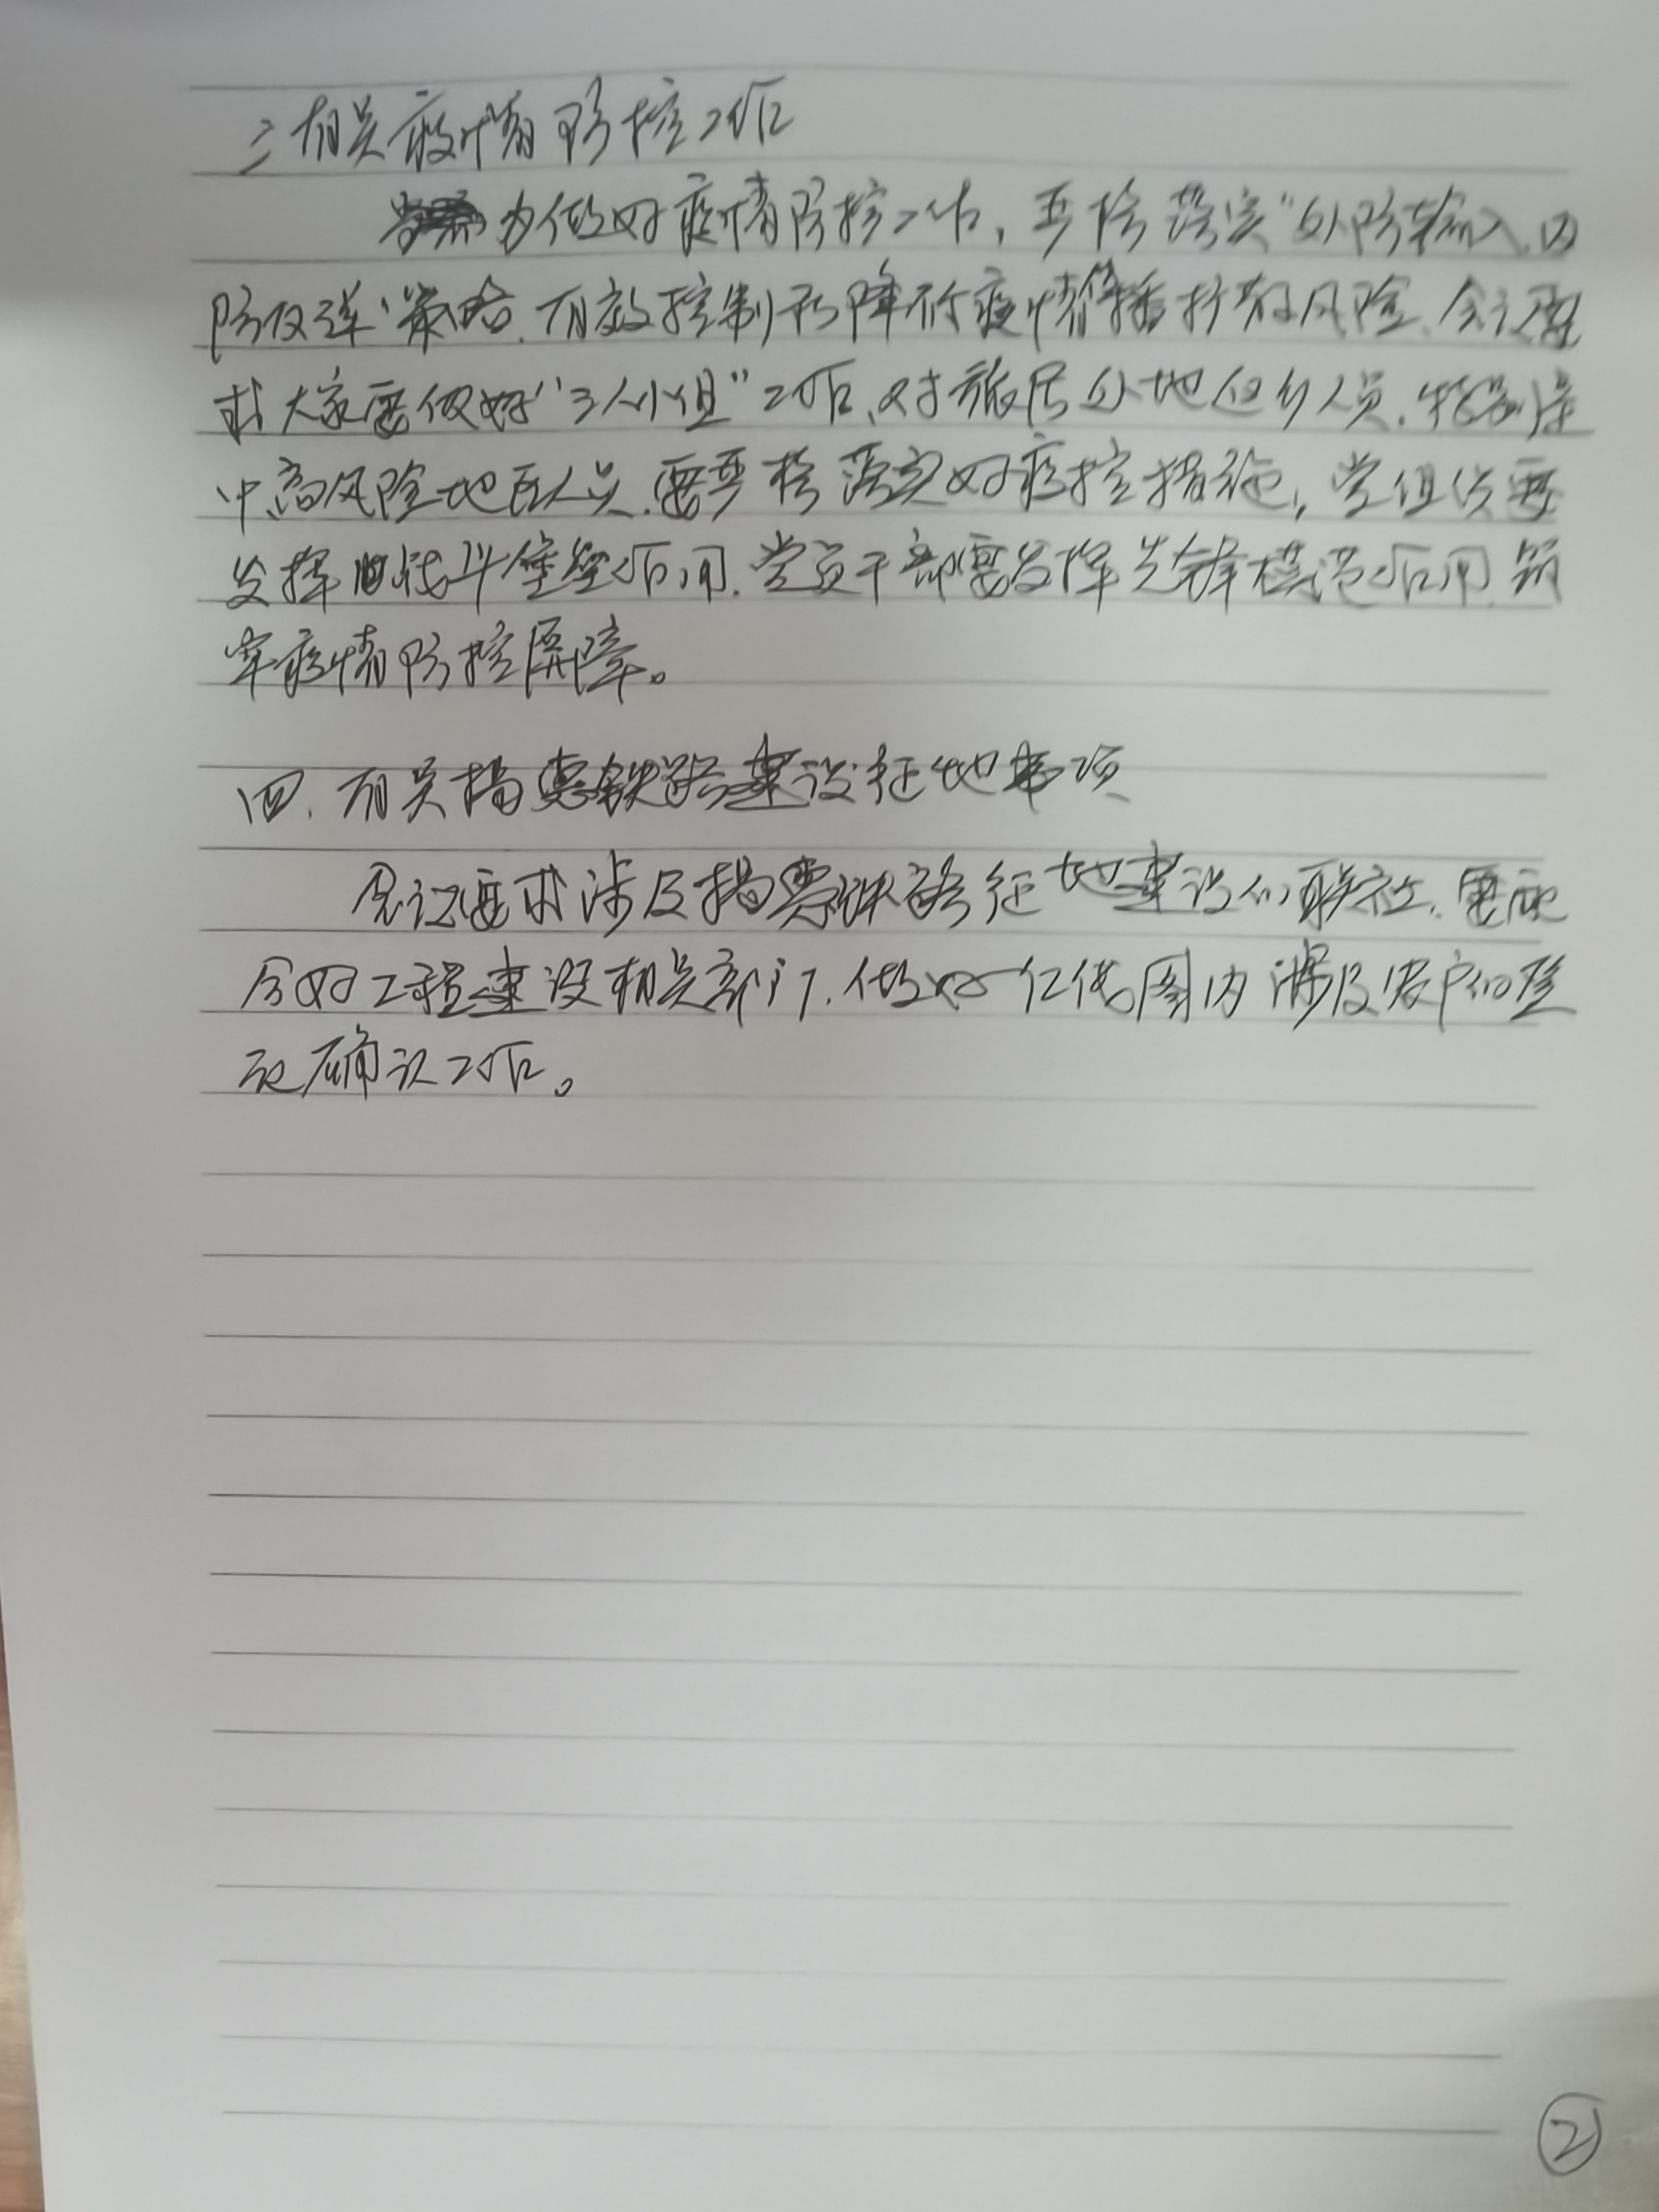 三有关疫情防控工作
为做好疫情防控工作,严格落实“外防输入,内
防反弹”策略,有效控制和降低疫情传播扩散风险,会议要
求大家要做好“三人小组”工作,对旅居外地返乡人员,特别是
中、高风险地区人员,要严格落实好疫控措施,党组织要
发挥战斗堡垒作用,党员干部要发挥先锋模范作用,筑
牢疫情防控屏障。
四、有关揭惠铁路建设征地事项
会议要求涉及揭惠铁路征地建设的联社,要配
合好工程建设相关部门,做好红线图内涉及农户的登
记确认工作。
②